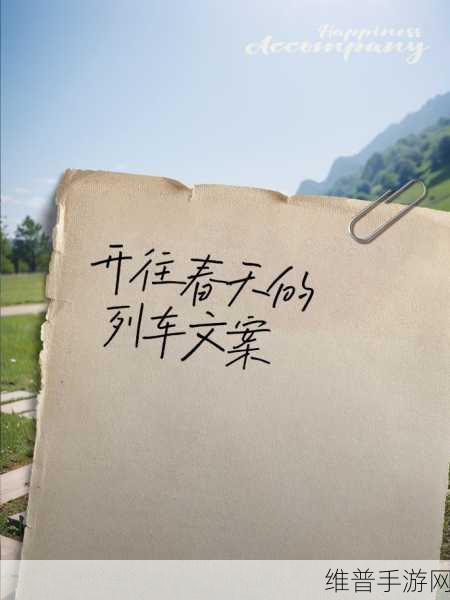 Happiness
Accompany
开往春天的
列车文案
维普手游网